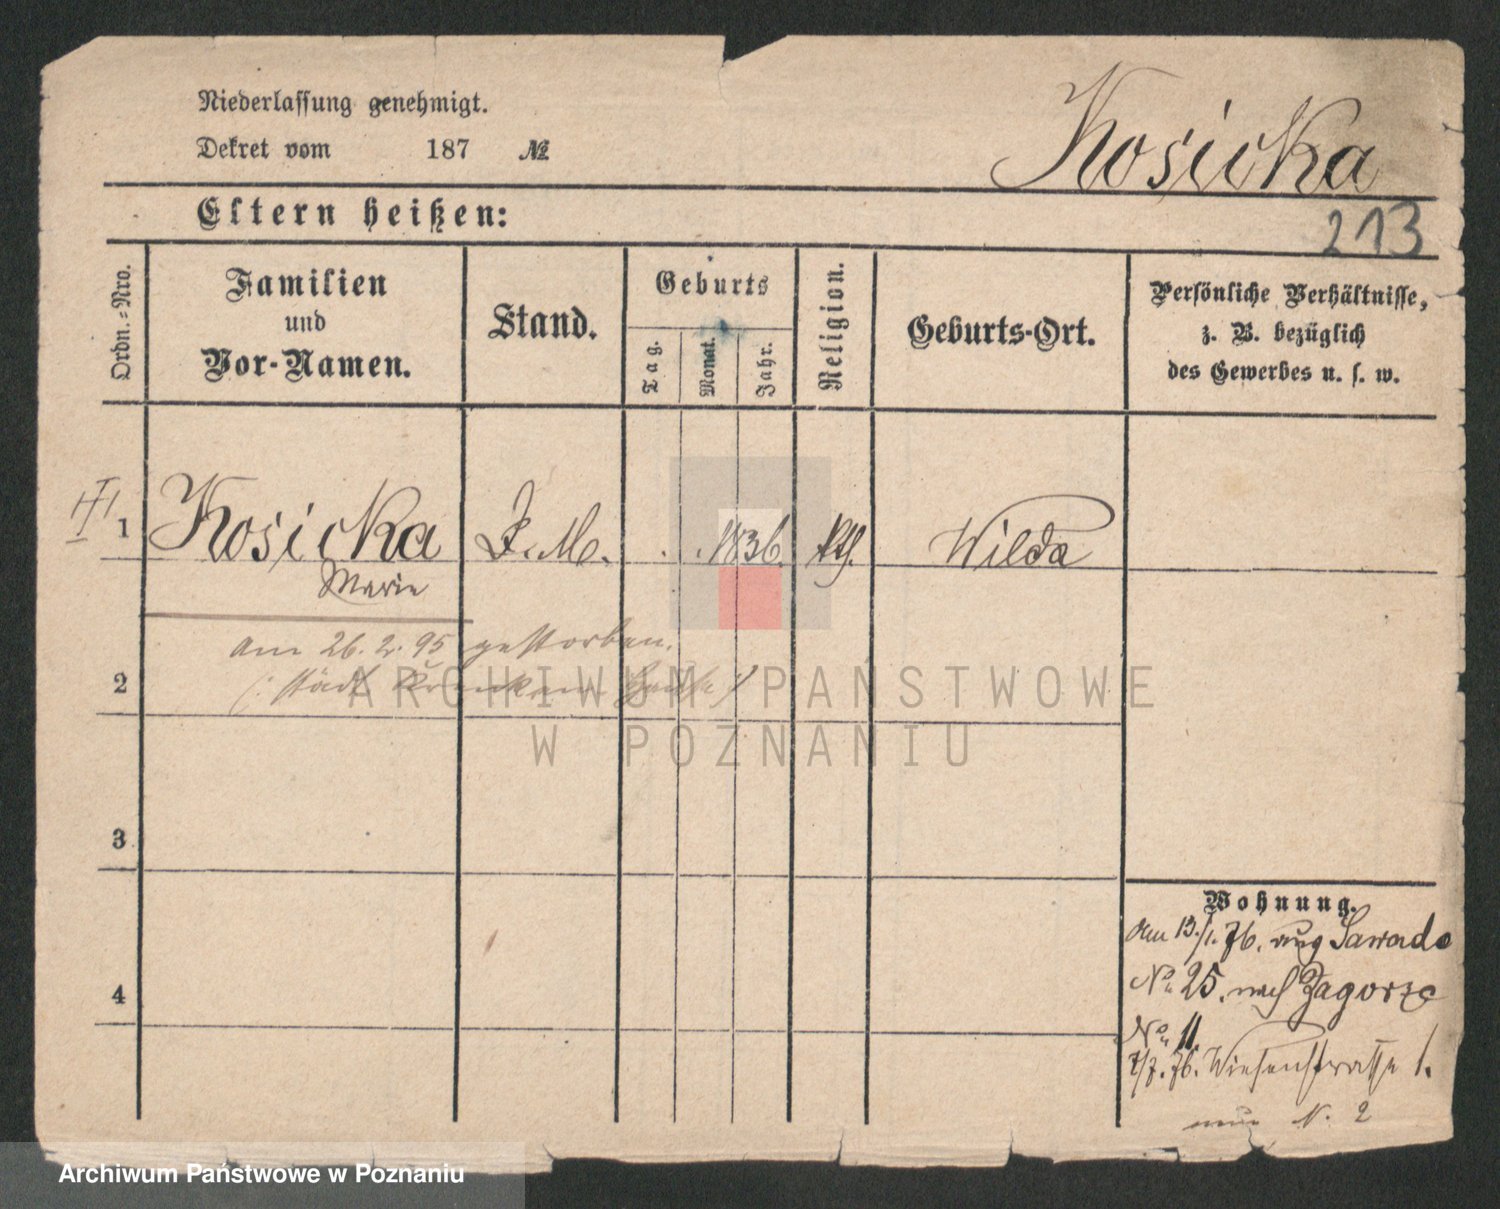 Niederlassung genehmigt.
Dekret vom 187 №
Kosicka
213
Eltern heißen:
Ordn.-Nro.
Familien
und
Vor-Namen.
Stand.
Geburts
Tag.
Monat.
Jahr.
Religion.
Geburts-Ort.
Persönliche Verhältnisse,
z. B. bezüglich
des Gewerbes u. s. w.
1 Kosicka 1836. kth. Wilda
Marie
am 26. 2. 95 gestorben.
2
(: städt.
ARCHIWUM PAŃSTWOWE
W POZNANIU
3
4
Wohnung.
Am 13./1. 76. aus Sawade
No. 25. nach Zagorze
No. 11.
7/7. 76. Wiesenstrasse 1.
neue N. 2
Archiwum Państwowe w Poznaniu